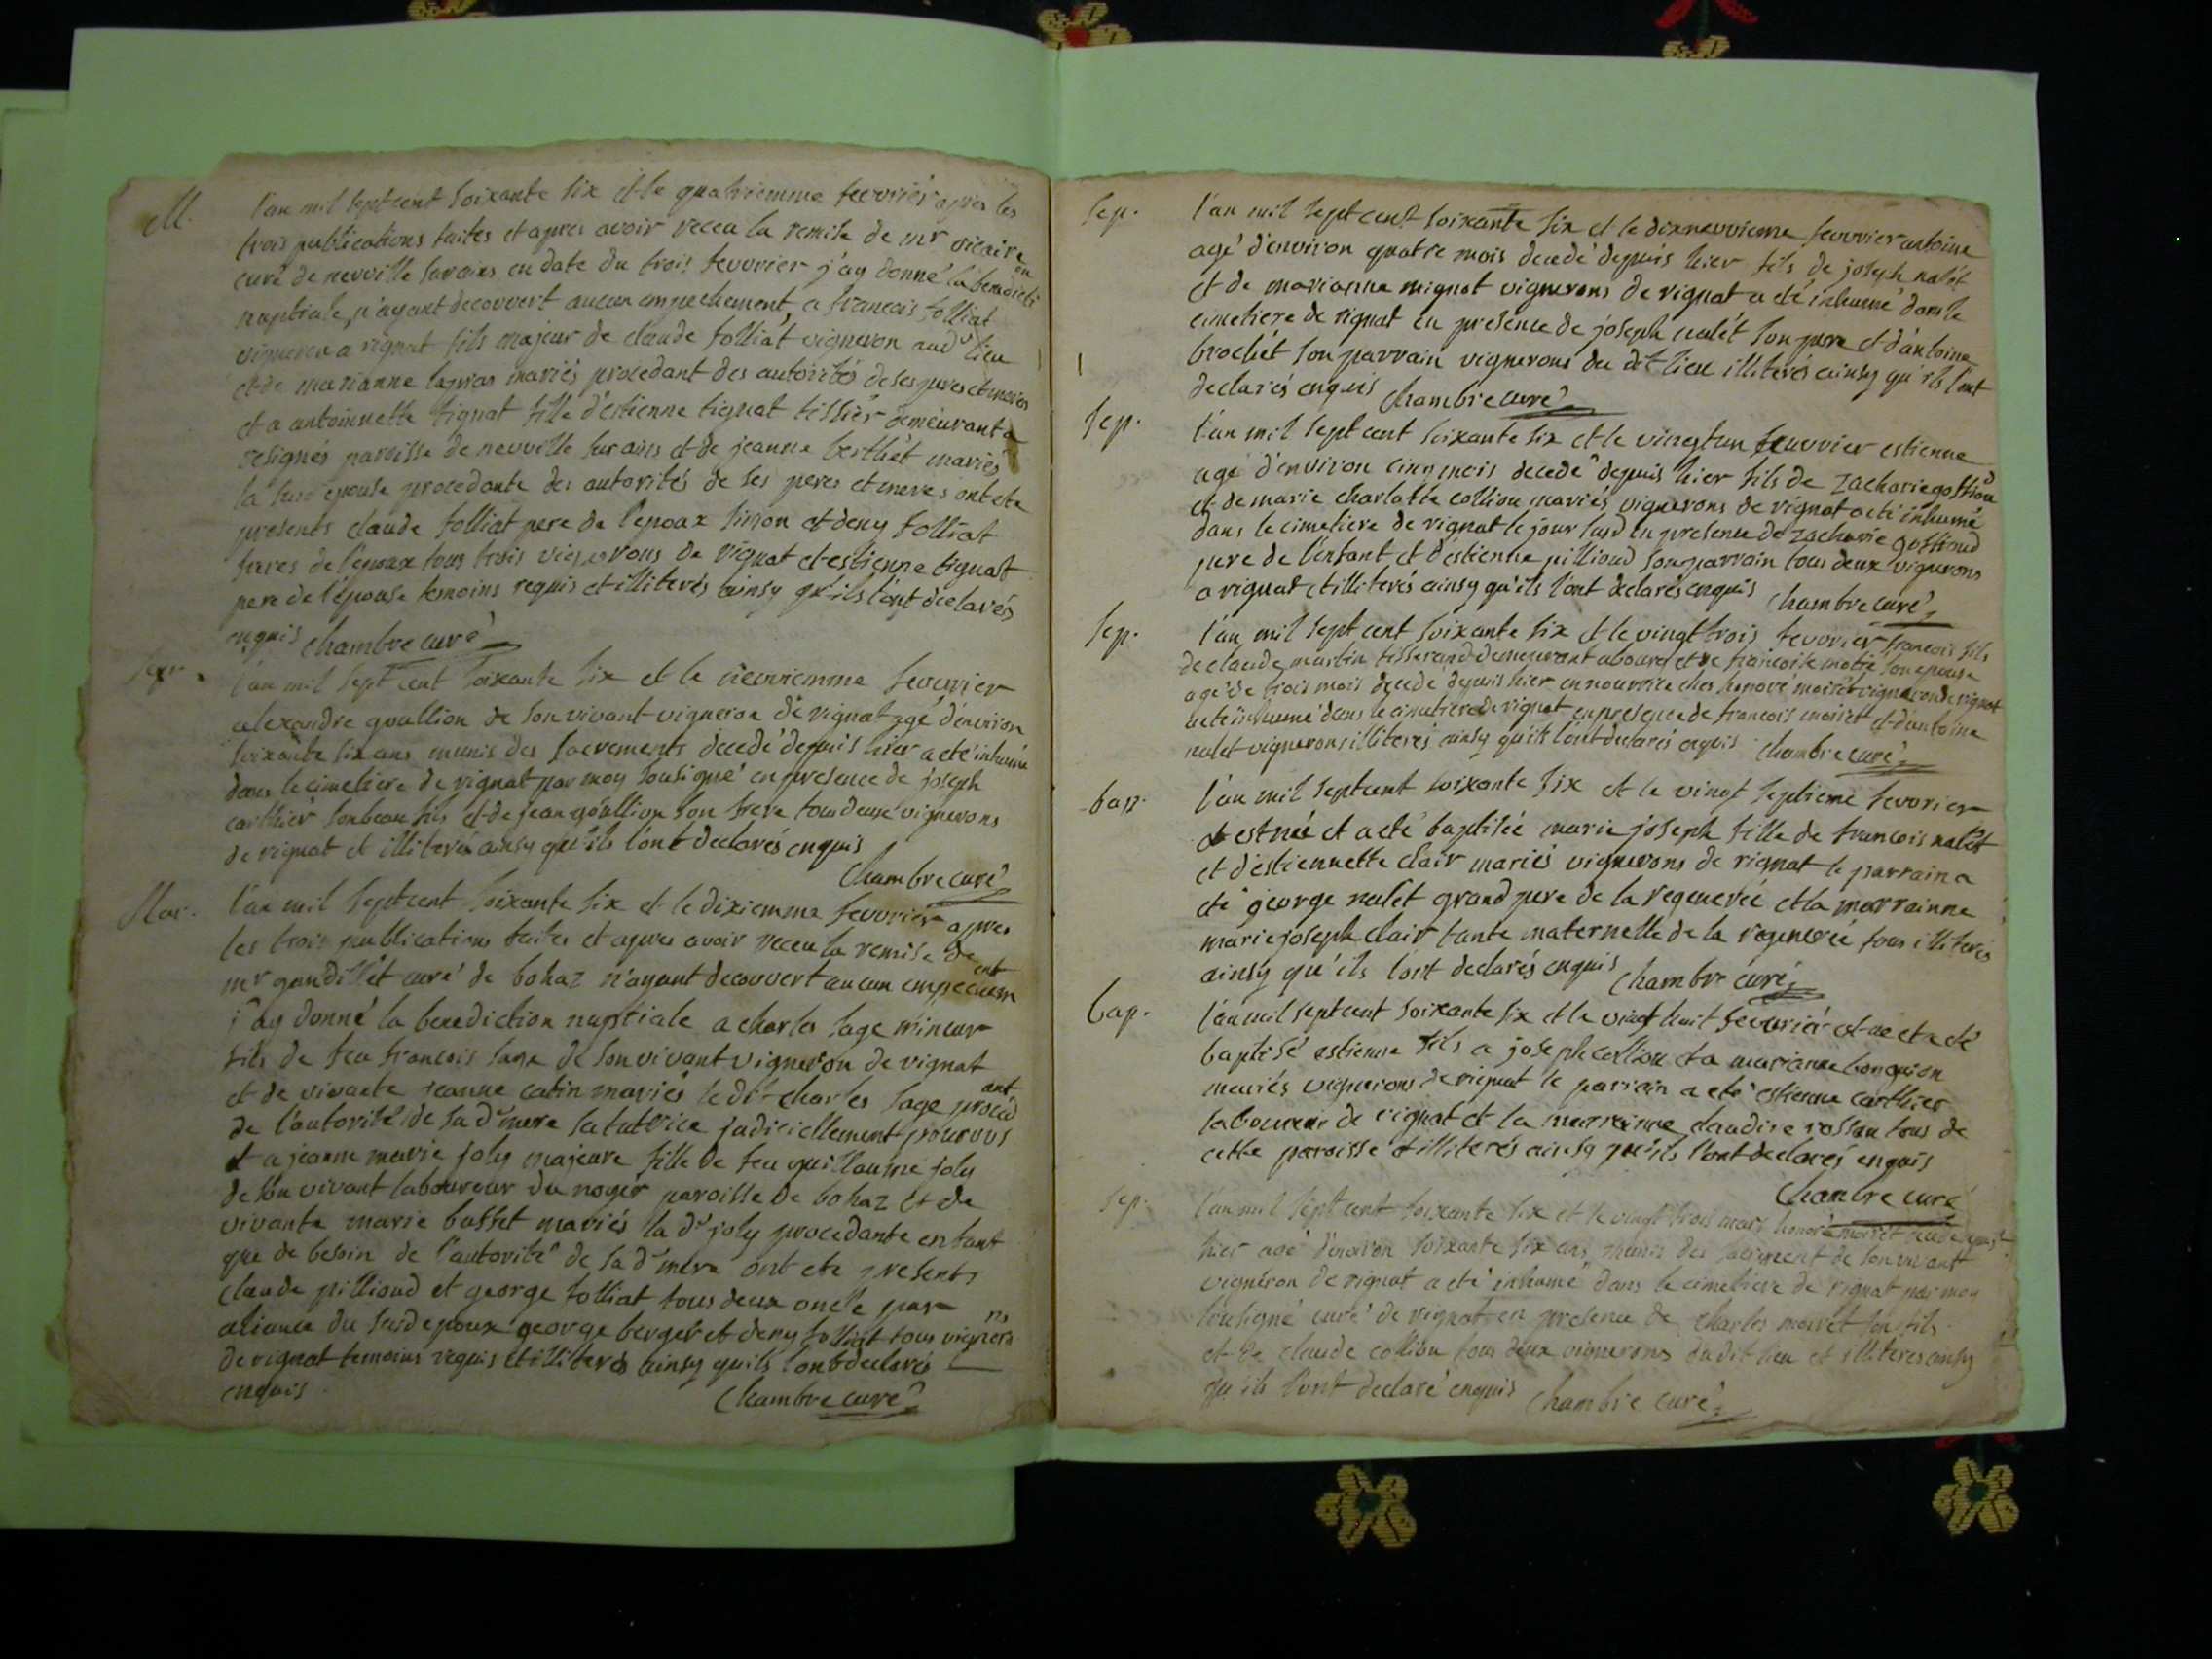 M. l'an mil sept cent soixante six et le quatriemme fevvrier apres les
trois publications faites et apres avoir receu la remise de mr vicaire
curé de nevville sur ains en date du trois fevvrier j'ay donné la benedicti on
nuptiale, n'ayant decouvert aucun empechement, a francois folliat
vigneron a rignat fils majeur de claude folliat vigneron aud lieu
et de marianne mariés procedant des autorités de ses peres et meres
et a antoinette tignat fille d'estienne tignat tissier demeurant a
resignés paroisse de nevville sur ains et de jeanne berthet mariés
la susd epouse procedante des autorités de ses peres et meres ont ete
presents claude folliat pere de l'epoux simon et deny folliat
freres de l'epoux tous trois vignerons de rignat et estienne tignat
pere de l'épouse temoins requis et illiterés ainsy qu'ils l'ont declarés
enquis Chambre curé
Sep. l'an mil sept cent soixante six et le neuviemme fevvrier
alexandre goullion de son vivant vigneron de rignat agé d'environ
soixante six ans munis des sacrements decedé depuis hier a eté inhumé
dans le cimetiere de rignat par moy sousigné en presence de joseph
carthier son beau fils et de jean goullion son frere tous deux vignerons
de rignat et illiterés ainsy qu'ils l'ont declarés enquis
Chambre curé
Mar. l'an mil sept cent soixante six et le dixiemme fevvrier apres
les trois publications faites et apres avoir receu la remise de
mr gandillet curé de bohaz n'ayant decouvert aucun empechem ent
j'ay donné la benediction nuptiale a charles sage mineur
fils de feu francois sage de son vivant vigneron de rignat
et de vivante jeanne catin mariés le dit charles sage proced ant
de l'autorité de sa d mere sa tutrice judiciellement pourvus
et a jeanne marie joly majeure fille de feu guillaume joly
de son vivant laboureur du noyer paroisse de bohaz et de
vivante marie busset mariés la d joly procedante en tant
que de besoin de l'autorité de sa d mere ont ete presents
claude pillioud et george folliat tous deux oncle par
aliance du susd epoux george berger et deny folliat tous vignero ns
de rignat temoins requis et illiterés ainsy qu'ils l'ont declarés
enquis Chambre curé
Sep. l'an mil sept cent soixante six et le dixneuvieme fevvrier antoine
agé d'environ quatre mois decedé depuis hier fils de joseph nalét
et de marianne mignot vignerons de rignat a eté inhumé dans le
cimetiere de rignat en presence de joseph nalét son pere et d'antoine
brochét son parrain vignerons du dit lieu illiterés ainsy qu'ils l'ont
declarés enquis Chambre curé
Sep. l'an mil sept cent soixante six et le vingt un fevvrier estienne
agé d'environ cinq mois decedé depuis hier fils de zacharie gottioud
et de marie charlotte collion mariés vignerons de rignat a eté inhumé
dans le cimetiere de rignat le jour susd en presence de zacharie gottioud
pere de l'enfant et d'estienne pillioud son parrain tous deux vignerons
a rignat et illiterés ainsy qu'ils l'ont declarés enquis Chambre curé
Sep. l'an mil sept cent soixante six et le vingt trois fevvrier francois fils
de claude martin tisserand demeurant et de francoise son epouse
agé de trois mois decedé depuis hier en nourrice ches honoré moirét vigneron de rignat
a eté inhumé dans le cimetiere de rignat en presence de francois moirét et d'antoine
nalet vignerons illiterés ainsy qu'ils l'ont declarés enquis Chambre curé
bap. l'an mil sept cent soixante six et le vingt septieme fevvrier
est née et a eté baptisée marie joseph fille de francois nalét
et d'estiennette clair mariés vignerons de rignat le parrain a
eté george nalet grand pere de la regenerée et la marrainne
marie joseph clair tante maternelle de la regenerée tous illiterés
ainsy qu'ils l'ont declarés enquis Chambre curé
bap. l'an mil sept cent soixante six et le vingt huit fevvrier est né et a eté
baptisé estienne fils a joseph collion et a marianne bonguion
mariés vignerons de rignat le parrain a eté estienne carthier
laboureur de rignat et la marrainne claudine rossan tous de
cette paroisse et illiterés ainsy qu'ils l'ont declarés enquis
Chambre curé
Sep. l'an mil sept cent soixante six et le vingt trois mars honoré moirét decedé
hier agé d'environ soixante six ans munis des sacrement de son vivant
vigneron de rignat a eté inhumé dans le cimetiere de rignat par moy
sousigné curé de rignat en presence de charles moirét son fils
et de claude collion tous deux vignerons dudit lieu et illiterés ainsy
qu'ils l'ont declaré enquis Chambre curé